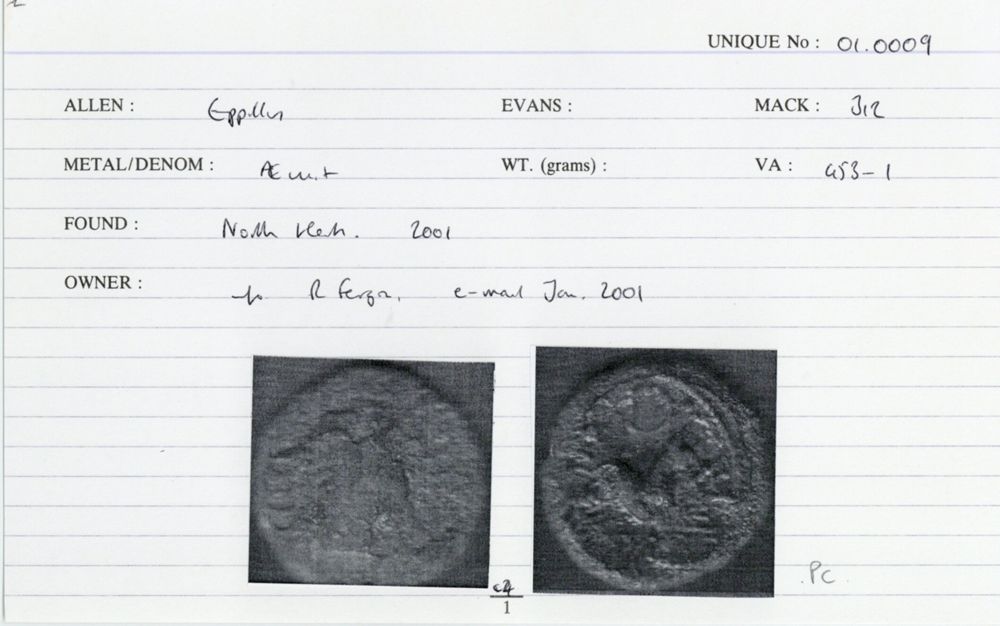 UNIQUE No : 01.0009
ALLEN : Eppillus EVANS : MACK : 312
METAL/DENOM : Æ unit WT. (grams) : VA : 453-1
FOUND : North Kent. 2001
OWNER : R e-mail Jan. 2001
1
PC